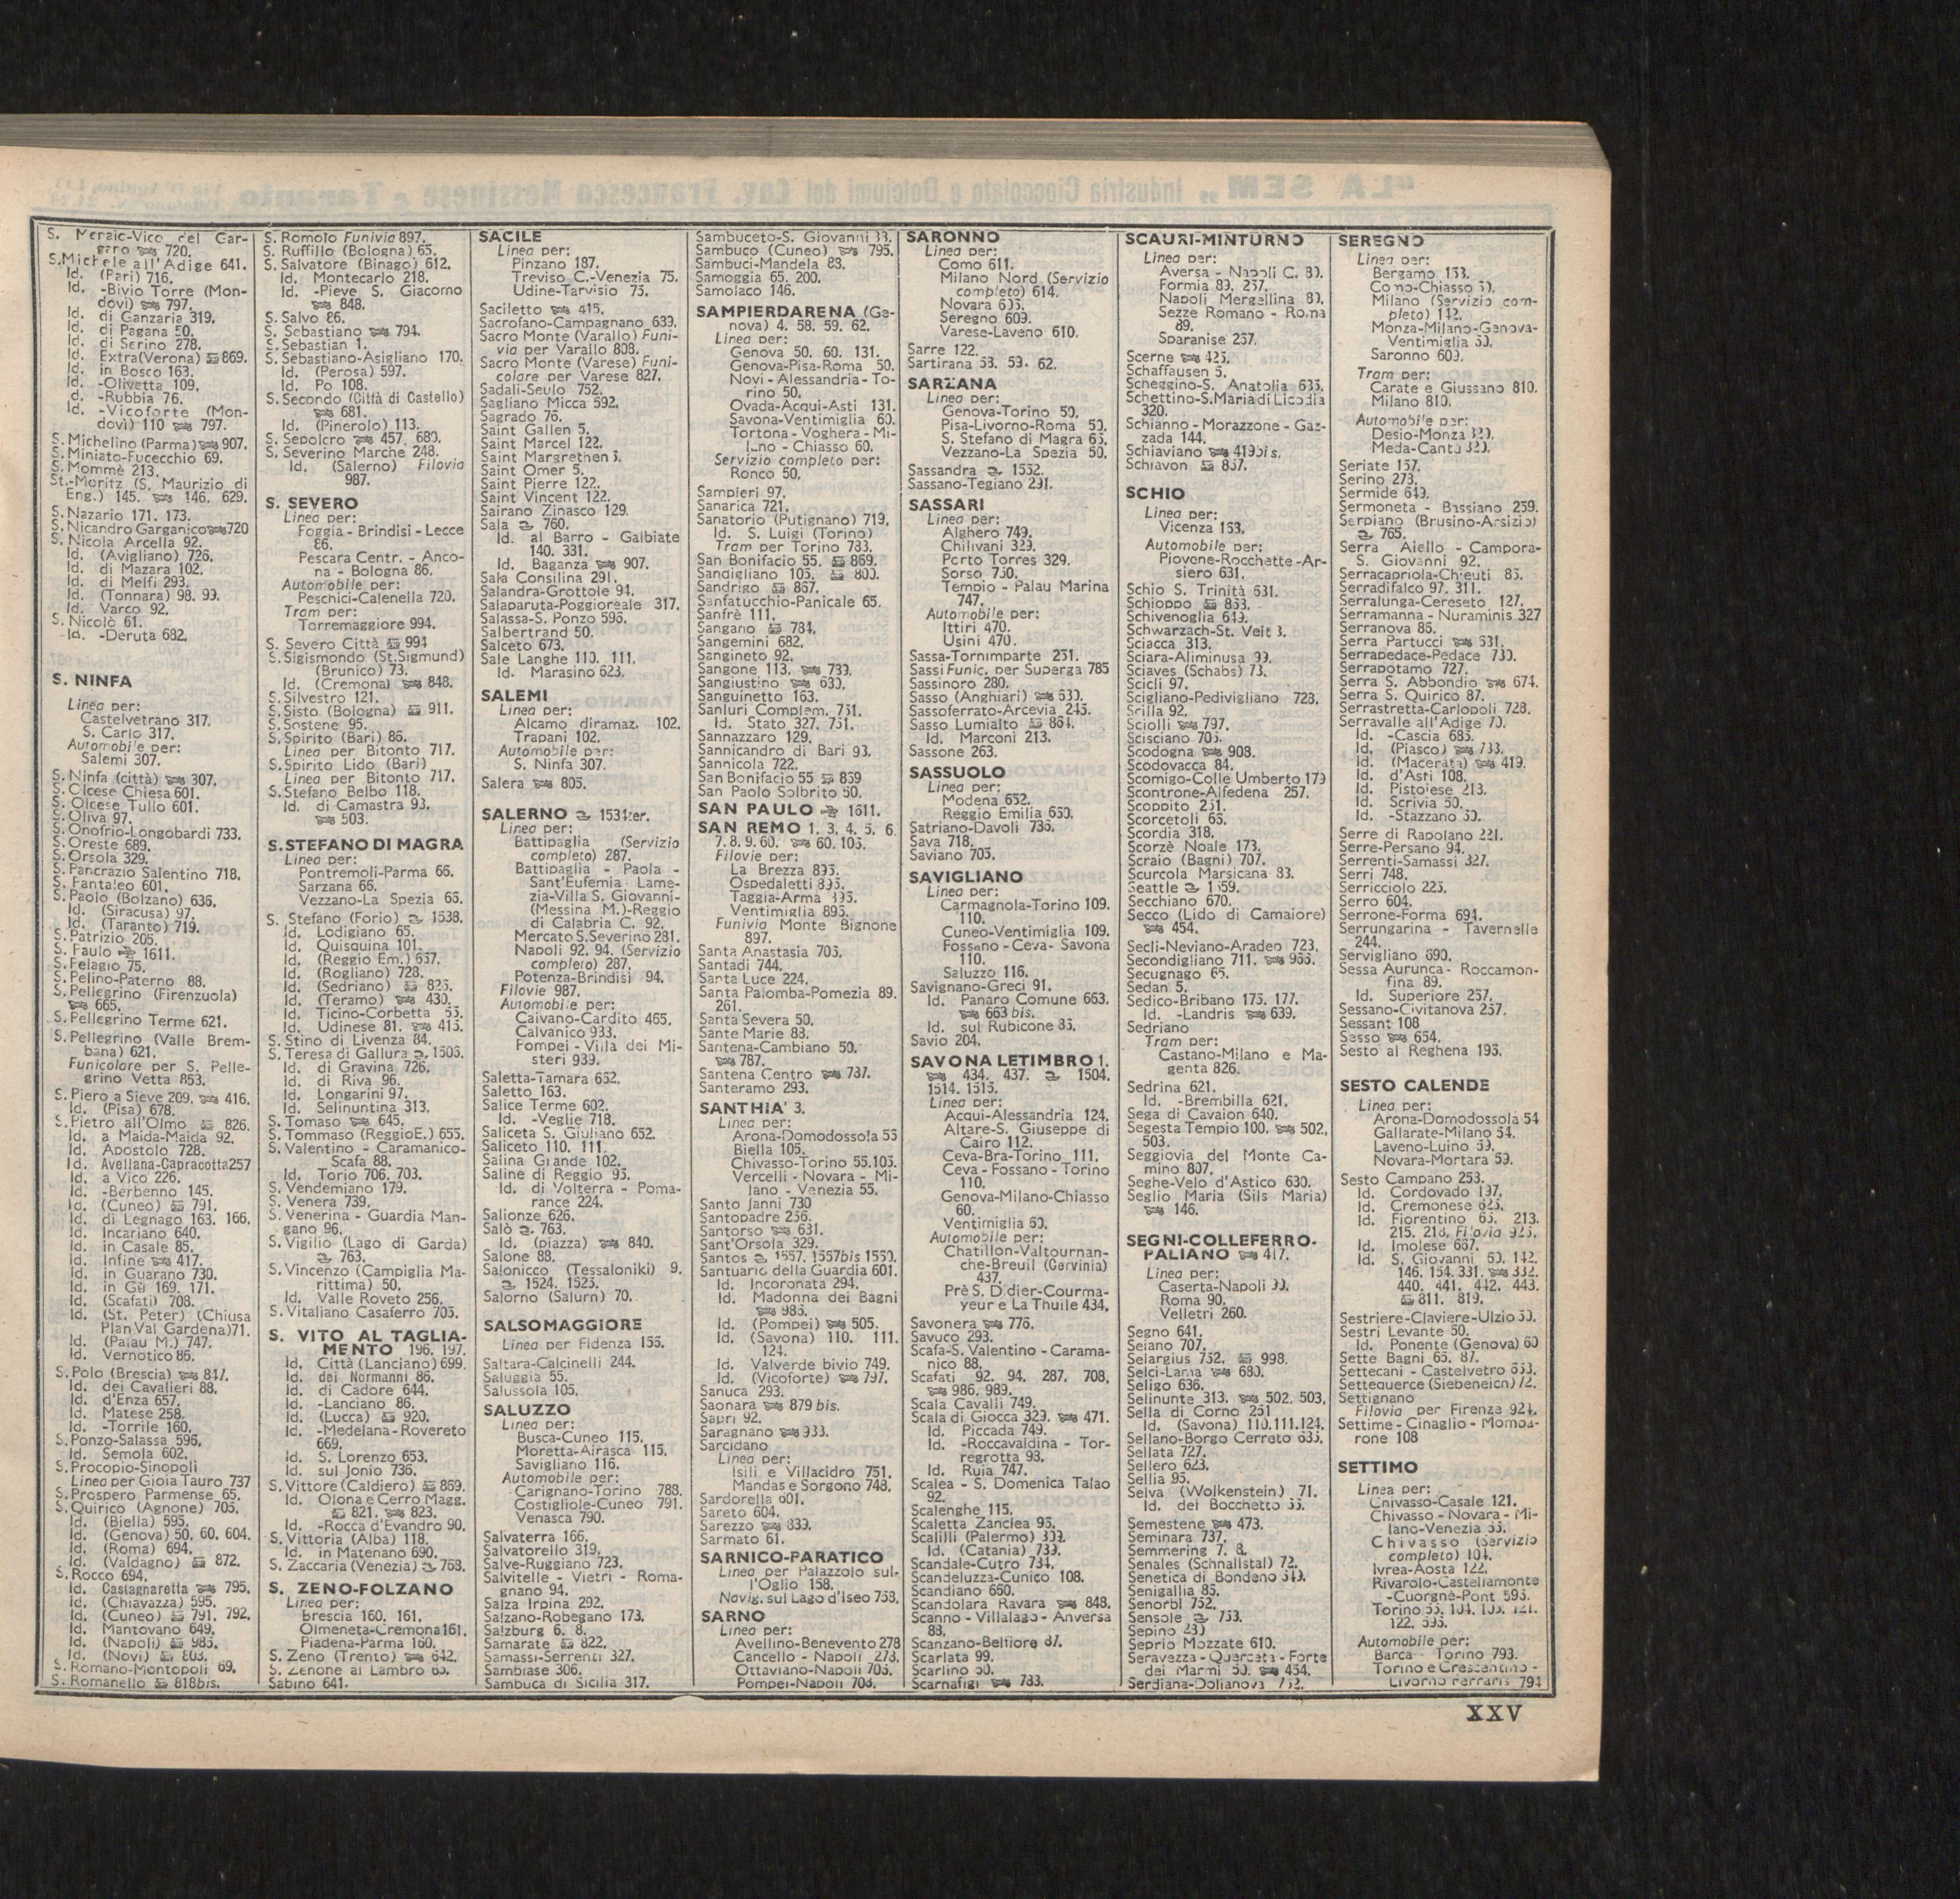 S. Menaic-Vico del Gar-
gano 720.
S.Michele all'Adige 641.
Id. (Pari) 716.
Id. -Bivio Torre (Mon-
dovì) 797.
Id. di Ganzaria 319.
Id. di Pagana 50.
Id. di Serino 278.
Id. Extra(Verona) 869.
Id. in Bosco 163.
Id. -Olivetta 109.
d. -Rubbia 76.
Id. -Vicoforte (Mon-
dovì) 110 797.
S.Michelino (Parma) 907.
S.Miniato-Fucecchio 69.
S.Mommè 213.
St.-Moritz (S. Maurizio di
Eng.) 145. 146. 629.
S.Nazario 171. 173.
S.Nicandro Garganico 720
S.Nicola Arcella 92.
Id. (Avigliano) 726.
Id. di Mazara 102.
Id. di Melfi 293.
Id. (Tonnara) 98. 99.
Id. Varco 92.
S.Nicolò 61.
Id. -Deruta 682.
S. NINFA
Linea per:
Castelvetrano 317.
S. Carlo 317.
Automobile per:
Salemi 307.
S.Ninfa (città) 307.
S.Olcese Chiesa 601.
S.Olcese Tullo 601.
S.Oliva 97.
S.Onofrio-Longobardi 733.
S.Oreste 689.
S.Orsola 329.
S.Pancrazio Salentino 718.
S.Pantaleo 601.
S.Paolo (Bolzano) 636.
Id. (Siracusa) 97.
Id. (Taranto) 719.
S.Patrizio 205.
S.Paulo 1611.
S.Pelagio 75.
S.Pelino-Paterno 88.
S.Pellegrino (Firenzuola)
665.
S.Pellegrino Terme 621.
S.Pellegrino (Valle Brem-
bana) 621.
Funicolare per S. Pelle-
grino Vetta 853.
S.Piero a Sieve 209. 416.
Id. (Pisa) 678.
S.Pietro all'Olmo 826.
Id. a Maida-Maida 92.
Id. Apostolo 728.
Id. Avellana-Capracotta257
Id. a Vico 226.
Id. -Berbenno 145.
Id. (Cuneo) 791.
Id. di Legnago 163. 166.
Id. Incariano 640.
Id. in Casale 85.
Id. Infine 417.
Id. in Guarano 730.
Id. in Gù 169. 171.
Id. (Scafati) 708.
Id. (St. Peter) (Chiusa
Plan Val Gardena)71.
Id. (Palau M.) 747.
Id. Vernotico 86.
S.Polo (Brescia) 847.
Id. dei Cavalieri 88.
Id. d'Enza 657.
Id. Matese 258.
Id. -Torrile 160.
S.Ponzo-Salassa 596.
Id. Semola 602.
S.Procopio-Sinopoli
Linea per Gioia Tauro 737
S.Prospero Parmense 65.
S.Quirico (Agnone) 705.
Id. (Biella) 595.
Id. (Genova) 50. 60. 604.
Id. (Roma) 694.
Id. (Valdagno) 872.
S.Rocco 694.
Id. Castagnaretta 795.
Id. (Chiavazza) 595.
Id. (Cuneo) 791. 792.
Id. Mantovano 649.
Id. (Napoli) 985.
Id. (Novi) 803.
S.Romano-Montopoli 69.
S.Romanello 818bis.
S. Romolo Funivia 897.
S. Ruffillo (Bologna) 65.
S. Salvatore (Binago) 612.
Id. Montecarlo 218.
Id. -Pieve S. Giacomo
848.
S. Salvo 86.
S. Sebastiano 794.
S. Sebastian 1.
S. Sebastiano-Asigliano 170.
Id. (Perosa) 597.
Id. Po 108.
S. Secondo (Città di Castello)
681.
Id. (Pinerolo) 113.
S. Sepolcro 457. 680.
S. Severino Marche 248.
Id. (Salerno) Filovia
987.
S. SEVERO
Linea per:
Foggia - Brindisi - Lecce
86.
Pescara Centr. - Anco-
na - Bologna 86.
Automobile per:
Peschici-Calenella 720.
Tram per:
Torremaggiore 994.
S. Severo Città 994
S.Sigismondo (St.Sigmund)
(Brunico) 73.
Id. (Cremona) 848.
S.Silvestro 121.
S.Sisto (Bologna) 911.
S.Sostene 95.
S.Spirito (Bari) 86.
Linea per Bitonto 717.
S.Spirito Lido (Bari)
Linea per Bitonto 717.
S.Stefano Belbo 118.
Id. di Camastra 93.
503.
S.STEFANO DI MAGRA
Linea per:
Pontremoli-Parma 66.
Sarzana 66.
Vezzano-La Spezia 66.
S. Stefano (Forio) 1538.
Id. Lodigiano 65.
Id. Quisquina 101.
Id. (Reggio Em.) 657.
Id. (Rogliano) 728.
Id. (Sedriano) 826.
Id. (Teramo) 430.
Id. Ticino-Corbetta 55.
Id. Udinese 81. 415.
S. Stino di Livenza 84.
S. Teresa di Gallura 1506.
Id. di Gravina 726.
Id. di Riva 96.
Id. Longarini 97.
Id. Selinuntina 313.
S. Tomaso 645.
S. Tommaso (ReggioE.) 655.
S. Valentino - Caramanico-
Scafa 88.
Id. Torio 706. 703.
S. Vendemiano 179.
S. Venera 739.
S. Venerina - Guardia Man-
gano 96.
S. Vigilio (Lago di Garda)
763.
S. Vincenzo (Campiglia Ma-
rittima) 50.
Id. Valle Roveto 256.
S. Vitaliano Casaferro 705.
S. VITO AL TAGLIA-
MENTO 196. 197.
Id. Città (Lanciano) 699.
Id. dei Normanni 86.
Id. di Cadore 644.
Id. -Lanciano 86.
Id. (Lucca) 920.
Id. -Medelana-Rovereto
669.
Id. S. Lorenzo 653.
Id. sul Jonio 736.
S. Vittore (Caldiero) 869.
Id. Olona e Cerro Magg.
821. 823.
Id. -Rocca d'Evandro 90.
S. Vittoria (Alba) 118.
Id. in Matenano 690.
S. Zaccaria (Venezia) 768.
S. ZENO-FOLZANO
Linea per:
Brescia 160. 161.
Olmeneta-Cremona161.
Piadena-Parma 160.
S. Zeno (Trento) 642.
S. Zenone al Lambro 65.
Sabino 641.
SACILE
Linea per:
Pinzano 187.
Treviso C.-Venezia 75.
Udine-Tarvisio 75.
Saciletto 415.
Sacrofano-Campagnano 689.
Sacro Monte (Varallo) Funi-
via per Varallo 808.
Sacro Monte (Varese) Funi-
colare per Varese 827.
Sadali-Seulo 752.
Sagliano Micca 592.
Sagrado 76.
Saint Gallen 5.
Saint Marcel 122.
Saint Margrethen 5.
Saint Omer 5.
Saint Pierre 122.
Saint Vincent 122.
Sairano Zinasco 129.
Sala 760.
Id. al Barro - Galbiate
140. 331.
Id. Baganza 907.
Sala Consilina 291.
Salandra-Grottole 94.
Salaparuta-Poggioreale 317.
Salassa-S. Ponzo 596.
Salbertrand 50.
Salceto 673.
Sale Langhe 110. 111.
Id. Marasino 623.
SALEMI
Linea per:
Alcamo diramaz. 102.
Trapani 102.
Automobile per:
S. Ninfa 307.
Salera 805.
SALERNO 1534ter.
Linea per:
Battipaglia (Servizio
completo) 287.
Battipaglia - Paola -
Sant'Eufemia Lame-
zia-Villa S. Giovanni-
(Messina M.)-Reggio
di Calabria C. 92.
Mercato S.Severino 281.
Napoli 92. 94. (Servizio
completo) 287.
Potenza-Brindisi 94.
Filovie 987.
Automobile per:
Caivano-Cardito 465.
Calvanico 933.
Pompei - Villa dei Mi-
steri 939.
Saletta-Tamara 652.
Saletto 163.
Salice Terme 602.
Id. -Veglie 718.
Saliceta S. Giuliano 652.
Saliceto 110. 111.
Salina Grande 102.
Saline di Reggio 95.
Id. di Volterra - Poma-
rance 224.
Salionze 626.
Salò 763.
Id. (piazza) 840.
Salone 88.
Salonicco (Tessaloniki) 9.
1524. 1525.
Salorno (Salurn) 70.
SALSOMAGGIORE
Linea per Fidenza 155.
Saltara-Calcinelli 244.
Saluggia 55.
Salussola 105.
SALUZZO
Linea per:
Busca-Cuneo 115.
Moretta-Airasca 115.
Savigliano 116.
Automobile per:
Carignano-Torino 788.
Costigliole-Cuneo 791.
Venasca 790.
Salvaterra 166.
Salvatorello 319.
Salve-Ruggiano 723.
Salvitelle - Vietri - Roma-
gnano 94.
Salza Irpina 292.
Salzano-Robegano 173.
Salzburg 6. 8.
Samarate 822.
Samassi-Serrenti 327.
Sambiase 306.
Sambuca di Sicilia 317.
Sambuceto-S. Giovanni 88.
Sambuco (Cuneo) 795.
Sambuci-Mandela 88.
Samoggia 65. 200.
Samolaco 146.
SAMPIERDARENA (Ge-
nova) 4. 58. 59. 62.
Linea per:
Genova 50. 60. 131.
Genova-Pisa-Roma 50.
Novi - Alessandria - To-
rino 50.
Ovada-Acqui-Asti 131.
Savona-Ventimiglia 60.
Tortona - Voghera - Mi-
lano - Chiasso 60.
Servizio completo per:
Ronco 50.
Sampieri 97.
Sanarica 721.
Sanatorio (Putignano) 719.
Id. S. Luigi (Torino)
Tram per Torino 783.
San Bonifacio 55. 869.
Sandigliano 105. 800.
Sandrigo 867.
Sanfatucchio-Panicale 65.
Sanfrè 111.
Sangano 784.
Sangemini 682.
Sangineto 92.
Sangone 113. 789.
Sangiustino 680.
Sanguinetto 163.
Sanluri Complem. 751.
Id. Stato 327. 751.
Sannazzaro 129.
Sannicandro di Bari 93.
Sannicola 722.
San Bonifacio 55 869
San Paolo Solbrito 50.
SAN PAULO 1611.
SAN REMO 1. 3. 4. 5. 6.
7. 8. 9. 60. 60. 105.
Filovie per:
La Brezza 895.
Ospedaletti 895.
Taggia-Arma 895.
Ventimiglia 895.
Funivia Monte Bignone
897.
Santa Anastasia 705.
Santadi 744.
Santa Luce 224.
Santa Palomba-Pomezia 89.
261.
Santa Severa 50.
Sante Marie 88.
Santena-Cambiano 50.
787.
Santena Centro 787.
Santeramo 293.
SANTHIA' 3.
Linea per:
Arona-Domodossola 55
Biella 105.
Chivasso-Torino 55.105.
Vercelli - Novara - Mi-
lano - Venezia 55.
Santo Janni 730
Santopadre 256.
Santorso 631.
Sant'Orsola 329.
Santos 1557. 1557bis 1560.
Santuario della Guardia 601.
Id. Incoronata 294.
Id. Madonna dei Bagni
985.
Id. (Pompei) 505.
Id. (Savona) 110. 111.
124.
Id. Valverde bivio 749.
Id. (Vicoforte) 797.
Sanuca 293.
Saonara 879 bis.
Sapri 92.
Saragnano 933.
Sarcidano
Linea per:
Isili e Villacidro 751.
Mandas e Sorgono 748.
Sardorella 601.
Sareto 604.
Sarezzo 839.
Sarmato 61.
SARNICO-PARATICO
Linea per Palazzolo sul-
l'Oglio 158.
Navig. sul Lago d'Iseo 758.
SARNO
Linea per:
Avellino-Benevento 278
Cancello - Napoli 278.
Ottaviano-Napoli 705.
Pompei-Napoli 708.
SARONNO
Linea per:
Como 611.
Milano Nord (Servizio
completo) 614.
Novara 605.
Seregno 609.
Varese-Laveno 610.
Sarre 122.
Sartirana 53. 59. 62.
SARZANA
Linea per:
Genova-Torino 50.
Pisa-Livorno-Roma 50.
S. Stefano di Magra 66.
Vezzano-La Spezia 50.
Sassandra 1552.
Sassano-Tegiano 291.
SASSARI
Linea per:
Alghero 749.
Chilivani 329.
Porto Torres 329.
Sorso 750.
Tempio - Palau Marina
747.
Automobile per:
Ittiri 470.
Usini 470.
Sassa-Tornimparte 251.
Sassi Funic. per Superga 785
Sassinoro 280.
Sasso (Anghiari) 680.
Sassoferrato-Arcevia 245.
Sasso Lumialto 864.
Id. Marconi 213.
Sassone 263.
SASSUOLO
Linea per:
Modena 652.
Reggio Emilia 660.
Satriano-Davoli 736.
Sava 718.
Saviano 705.
SAVIGLIANO
Linea per:
Carmagnola-Torino 109.
110.
Cuneo-Ventimiglia 109.
Fossano - Ceva- Savona
110.
Saluzzo 116.
Savignano-Greci 91.
Id. Panaro Comune 663.
663 bis.
Id. sul Rubicone 85.
Savio 204.
SAVONA LETIMBRO 1.
434. 437. 1504.
1514. 1515.
Linea per:
Acqui-Alessandria 124.
Altare-S. Giuseppe di
Cairo 112.
Ceva-Bra-Torino 111.
Ceva - Fossano - Torino
110.
Genova-Milano-Chiasso
60.
Ventimiglia 60.
Automobile per:
Chatillon-Valtournan-
che-Breuil (Cervinia)
437.
Prè S. Didier-Courma-
yeur e La Thuile 434.
Savonera 776.
Savuco 293.
Scafa-S. Valentino - Carama-
nico 88.
Scafati 92. 94. 287. 708.
986. 989.
Scala Cavalli 749.
Scala di Giocca 329. 471.
Id. Piccada 749.
Id. -Roccavaldina - Tor-
regrotta 93.
Id. Ruia 747.
Scalea - S. Domenica Talao
92.
Scalenghe 115.
Scaletta Zanclea 96.
Scalilli (Palermo) 309.
Id. (Catania) 739.
Scandale-Cutro 734.
Scandeluzza-Cunico 108.
Scandiano 660.
Scandolara Ravara 848.
Scanno - Villalago - Anversa
88.
Scanzano-Belfiore 87.
Scarlata 99.
Scarlino 50.
Scarnafigi 783.
SCAURI-MINTURNO
Linea per:
Aversa - Napoli C. 89.
Formia 89. 257.
Napoli Mergellina 89.
Sezze Romano - Roma
89.
Sparanise 257.
Scerne 425.
Schaffausen 5.
Scheggino-S. Anatolia 635.
Schettino-S.Maria di Licodia
320.
Schianno - Morazzone - Gaz-
zada 144.
Schiaviano 419bis.
Schiavon 867.
SCHIO
Linea per:
Vicenza 168.
Automobile per:
Piovene-Rocchette-Ar-
siero 631.
Schio S. Trinità 631.
Schioppo 853.
Schivenoglia 649.
Schwarzach-St. Veit 8.
Sciacca 313.
Sciara-Aliminusa 99.
Sciaves (Schabs) 73.
Scicli 97.
Scigliano-Pedivigliano 728.
Scilla 92.
Sciolli 797.
Scisciano 705.
Scodogna 908.
Scodovacca 84.
Scomigo-Colle Umberto 179
Scontrone-Alfedena 257.
Scoppito 251.
Scorcetoli 66.
Scordia 318.
Scorzè Noale 173.
Scraio (Bagni) 707.
Scurcola Marsicana 88.
Seattle 1559.
Secchiano 670.
Secco (Lido di Camaiore)
454.
Secli-Neviano-Aradeo 723.
Secondigliano 711. 966.
Secugnago 65.
Sedan 5.
Sedico-Bribano 175. 177.
Id. -Landris 639.
Sedriano
Tram per:
Castano-Milano e Ma-
genta 826.
Sedrina 621.
Id. -Brembilla 621.
Sega di Cavaion 640.
Segesta Tempio 100. 502.
503.
Seggiovia del Monte Ca-
mino 807.
Seghe-Velo d'Astico 630.
Seglio Maria (Sils Maria)
146.
SEGNI-COLLEFERRO-
PALIANO 417.
Linea per:
Caserta-Napoli 90.
Roma 90.
Velletri 260.
Segno 641.
Seiano 707.
Selargius 752. 998.
Selci-Lama 680.
Seligo 636.
Selinunte 313. 502. 503.
Sella di Corno 251
Id. (Savona) 110.111.124.
Sellano-Borgo Cerreto 635.
Sellata 727.
Sellero 623.
Sellia 95.
Selva (Wolkenstein) 71.
Id. del Bocchetto 66.
Semestene 473.
Seminara 737.
Semmering 7. 8.
Senales (Schnallstal) 72.
Senetica di Bondeno 649.
Senigallia 85.
Senorbì 752.
Sensole 753.
Sepino 280
Seprio Mozzate 610.
Seravezza - Querceta - Forte
dei Marmi 50. 454.
Serdiana-Dolianova 752.
SEREGNO
Linea per:
Bergamo 153.
Como-Chiasso 60.
Milano (Servizio com-
pleto) 142.
Monza-Milano-Genova-
Ventimiglia 60.
Saronno 609.
Tram per:
Carate e Giussano 810.
Milano 810.
Automobile per:
Desio-Monza 820.
Meda-Cantù 820.
Seriate 157.
Serino 273.
Sermide 649.
Sermoneta - Bassiano 259.
Serpiano (Brusino-Arsizio)
765.
Serra Aiello - Campora-
S. Giovanni 92.
Serracapriola-Chieuti 86.
Serradifalco 97. 311.
Serralunga-Cereseto 127.
Serramanna - Nuraminis 327
Serranova 86.
Serra Partucci 681.
Serrapedace-Pedace 730.
Serrapotamo 727.
Serra S. Abbondio 674.
Serra S. Quirico 87.
Serrastretta-Carlopoli 728.
Serravalle all'Adige 70.
Id. -Cascia 685.
Id. (Piasco) 783.
Id. (Macerata) 419.
Id. d'Asti 108.
Id. Pistoiese 213.
Id. Scrivia 50.
Id. -Stazzano 50.
Serre di Rapolano 221.
Serre-Persano 94.
Serrenti-Samassi 327.
Serri 748.
Serricciolo 225.
Serro 604.
Serrone-Forma 694.
Serrungarina - Tavernelle
244.
Servigliano 690.
Sessa Aurunca- Roccamon-
fina 89.
Id. Superiore 257.
Sessano-Civitanova 257.
Sessant 108
Sesso 654.
Sesto al Reghena 195.
SESTO CALENDE
Linea per:
Arona-Domodossola 54
Gallarate-Milano 54.
Laveno-Luino 59.
Novara-Mortara 59.
Sesto Campano 253.
Id. Cordovado 197.
Id. Cremonese 625.
Id. Fiorentino 65. 213.
215. 218. Filovia 925.
Id. Imolese 667.
Id. S. Giovanni 60. 142.
146. 154. 331. 332.
440. 441. 442. 443.
811. 819.
Sestriere-Claviere-Ulzio 50.
Sestri Levante 50.
Id. Ponente (Genova) 60
Sette Bagni 65. 87.
Settecani - Castelvetro 663.
Settequerce (Siebeneich) 72.
Settignano
Filovia per Firenze 924.
Settime - Cinaglio - Momba-
rone 108
SETTIMO
Linea per:
Chivasso-Casale 121.
Chivasso - Novara - Mi-
lano-Venezia 55.
Chivasso (Servizio
completo) 104.
Ivrea-Aosta 122.
Rivarolo-Castellamonte
-Cuorgnè-Pont 596.
Torino 55. 104. 105. 121.
122. 596.
Automobile per:
Barca - Torino 793.
Torino e Crescentino -
Livorno Ferraris 794
XXV